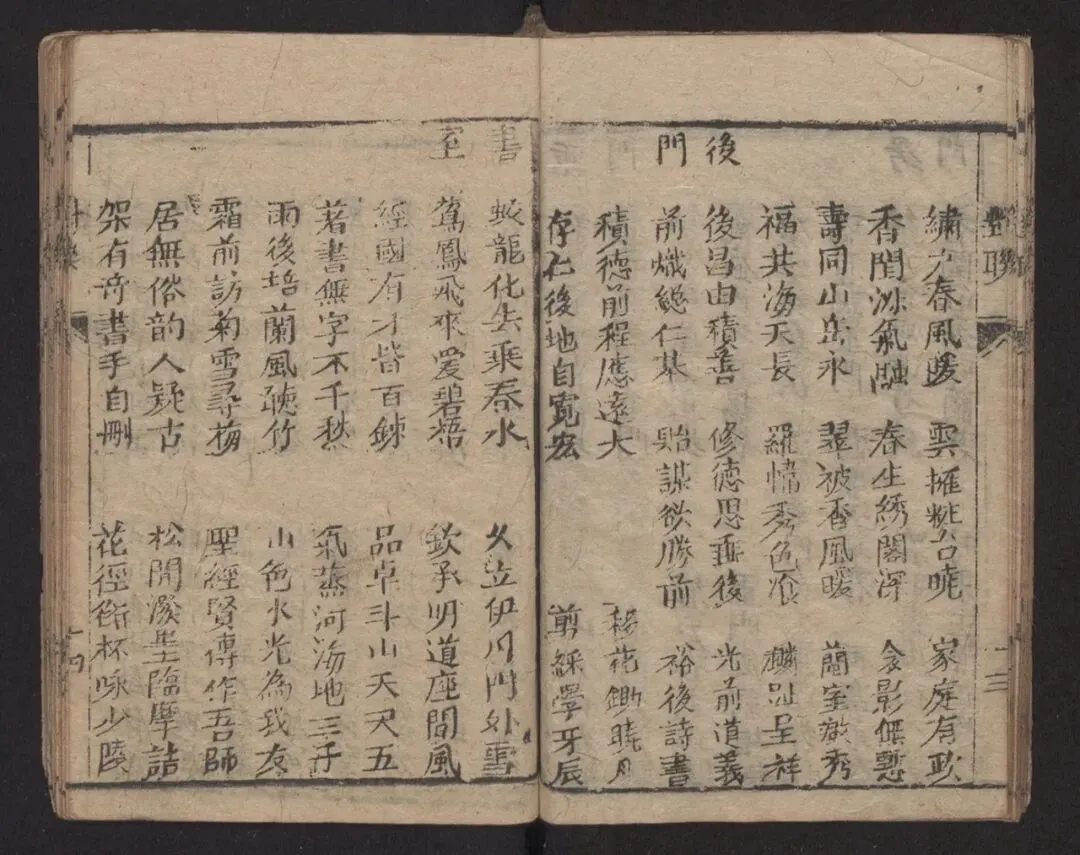 對聯
十三
繡戶春風暖 雲擁粧台曉 家庭有政
香閨淑氣融 春生綉閣深 衾影無慙
壽同山岳永 翠被香風暖 蘭室徵秀
福共海天長 羅幃秀色飡 麟趾呈祥
後門
後昌由積善 修德思垂後 光前道義
前熾總仁基 貽謀欲勝前 裕後詩書
積德前程應遠大 楊花鋤曉月
存仁後地自寬宏 剪綵學牙辰
書室
蛟龍化去乘春水 久立伊川門外雪
鸞鳳飛來愛碧梧 欽承明道座間風
經國有才皆百鍊 品卓斗山天尺五
著書無字不千秋 氣蒸河海地三千
雨後培蘭風聽竹 山色水光為我友
霜前訪菊雪尋梅 聖經賢傳作吾師
居無俗韵人疑古 松間潑墨臨摩詰
架有奇書手自刪 花徑銜杯咏少陵
十四